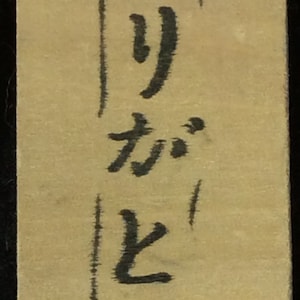 りがと